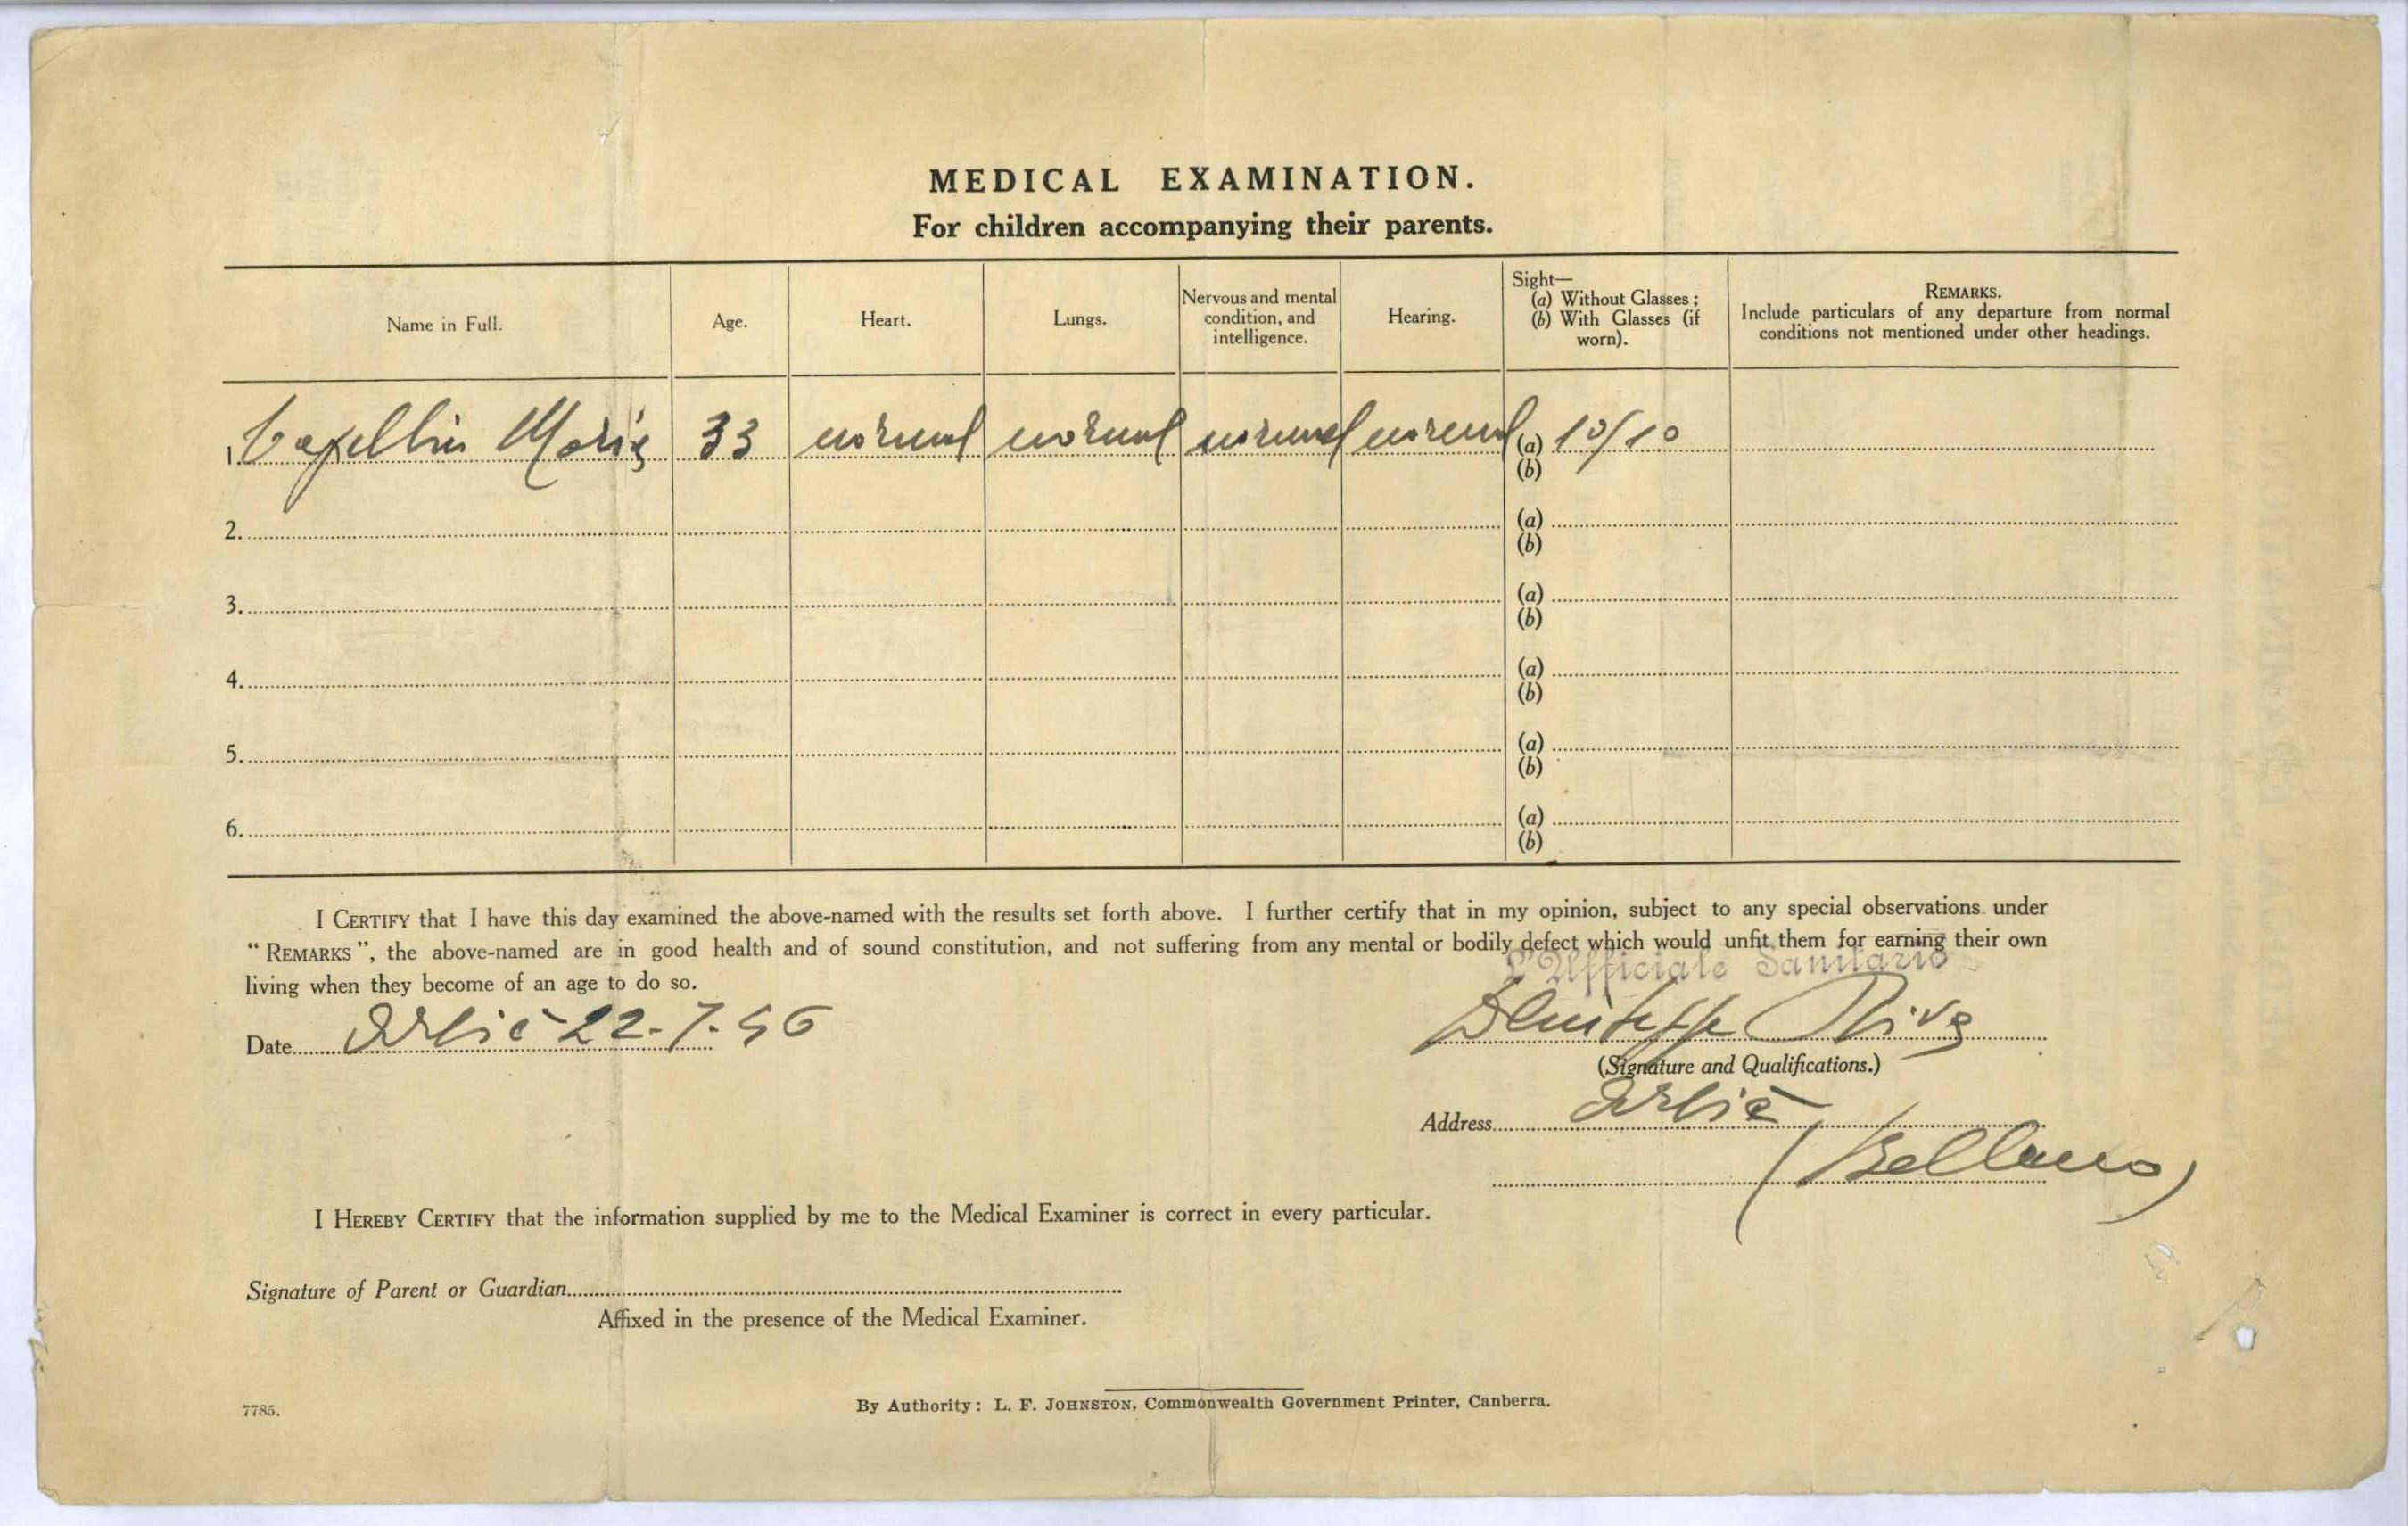 MEDICAL EXAMINATION.
For children accompanying their parents.
Name in Full. Age. Heart. Lungs. Nervous and mental condition, and intelligence. Hearing. Sight— (a) Without Glasses; (b) With Glasses (if worn). REMARKS. Include particulars of any departure from normal conditions not mentioned under other headings.
1. Maria 33 normal normal normal normal (a) 10/10
(b)
2. (a)
(b)
3. (a)
(b)
4. (a)
(b)
5. (a)
(b)
6. (a)
(b)
I CERTIFY that I have this day examined the above-named with the results set forth above. I further certify that in my opinion, subject to any special observations under
“REMARKS”, the above-named are in good health and of sound constitution, and not suffering from any mental or bodily defect which would unfit them for earning their own
living when they become of an age to do so.
L'Ufficiale Sanitario
Date Arsiè 22-7-56
Riva
(Signature and Qualifications.)
Address Arsiè
(Belluno)
I HEREBY CERTIFY that the information supplied by me to the Medical Examiner is correct in every particular.
Signature of Parent or Guardian
Affixed in the presence of the Medical Examiner.
7785. By Authority: L. F. JOHNSTON, Commonwealth Government Printer, Canberra.